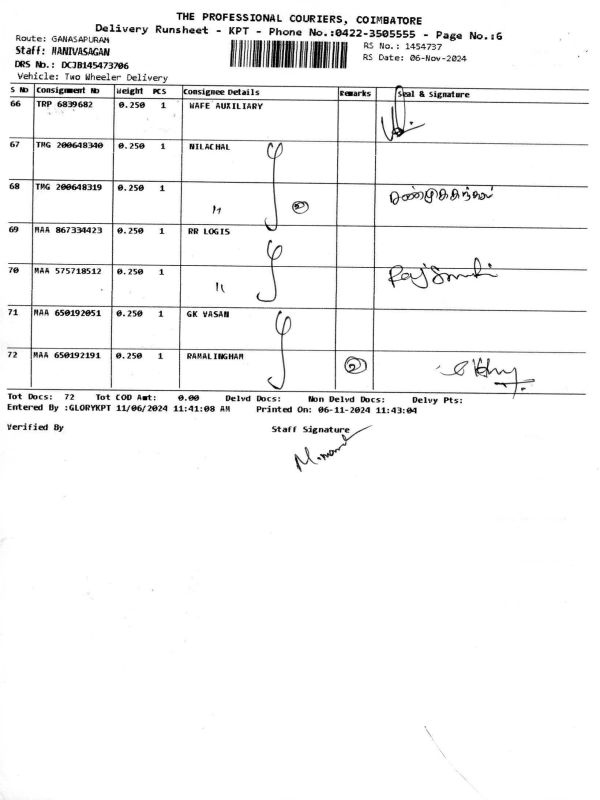 THE PROFESSIONAL COURIERS, COIMBATORE
Delivery Runsheet - KPT - Phone No.:0422-3505555 - Page No.:6
Route: GANASAPURAM
RS No.: 1454737
Staff: MANIVASAGAN
RS Date: 06-Nov-2024
DRS No.: DCJB145473706
Vehicle: Two Wheeler Delivery
S No Consignment No Weight PCS Consignee Details Remarks Seal & Signature
66 TRP 6839682 0.250 1 WAFE AUXILIARY
67 TMG 200648340 0.250 1 NILACHAL
68 TMG 200648319 0.250 1 " 2
69 MAA 867334423 0.250 1 RR LOGIS
70 MAA 575718512 0.250 1 "
71 MAA 650192051 0.250 1 GK VASAN
72 MAA 650192191 0.250 1 RAMALINGHAM 2
Tot Docs: 72 Tot COD Amt: 0.00 Delvd Docs: Non Delvd Docs: Delvy Pts:
Entered By :GLORYKPT 11/06/2024 11:41:08 AM Printed On: 06-11-2024 11:43:04
Verified By Staff Signature